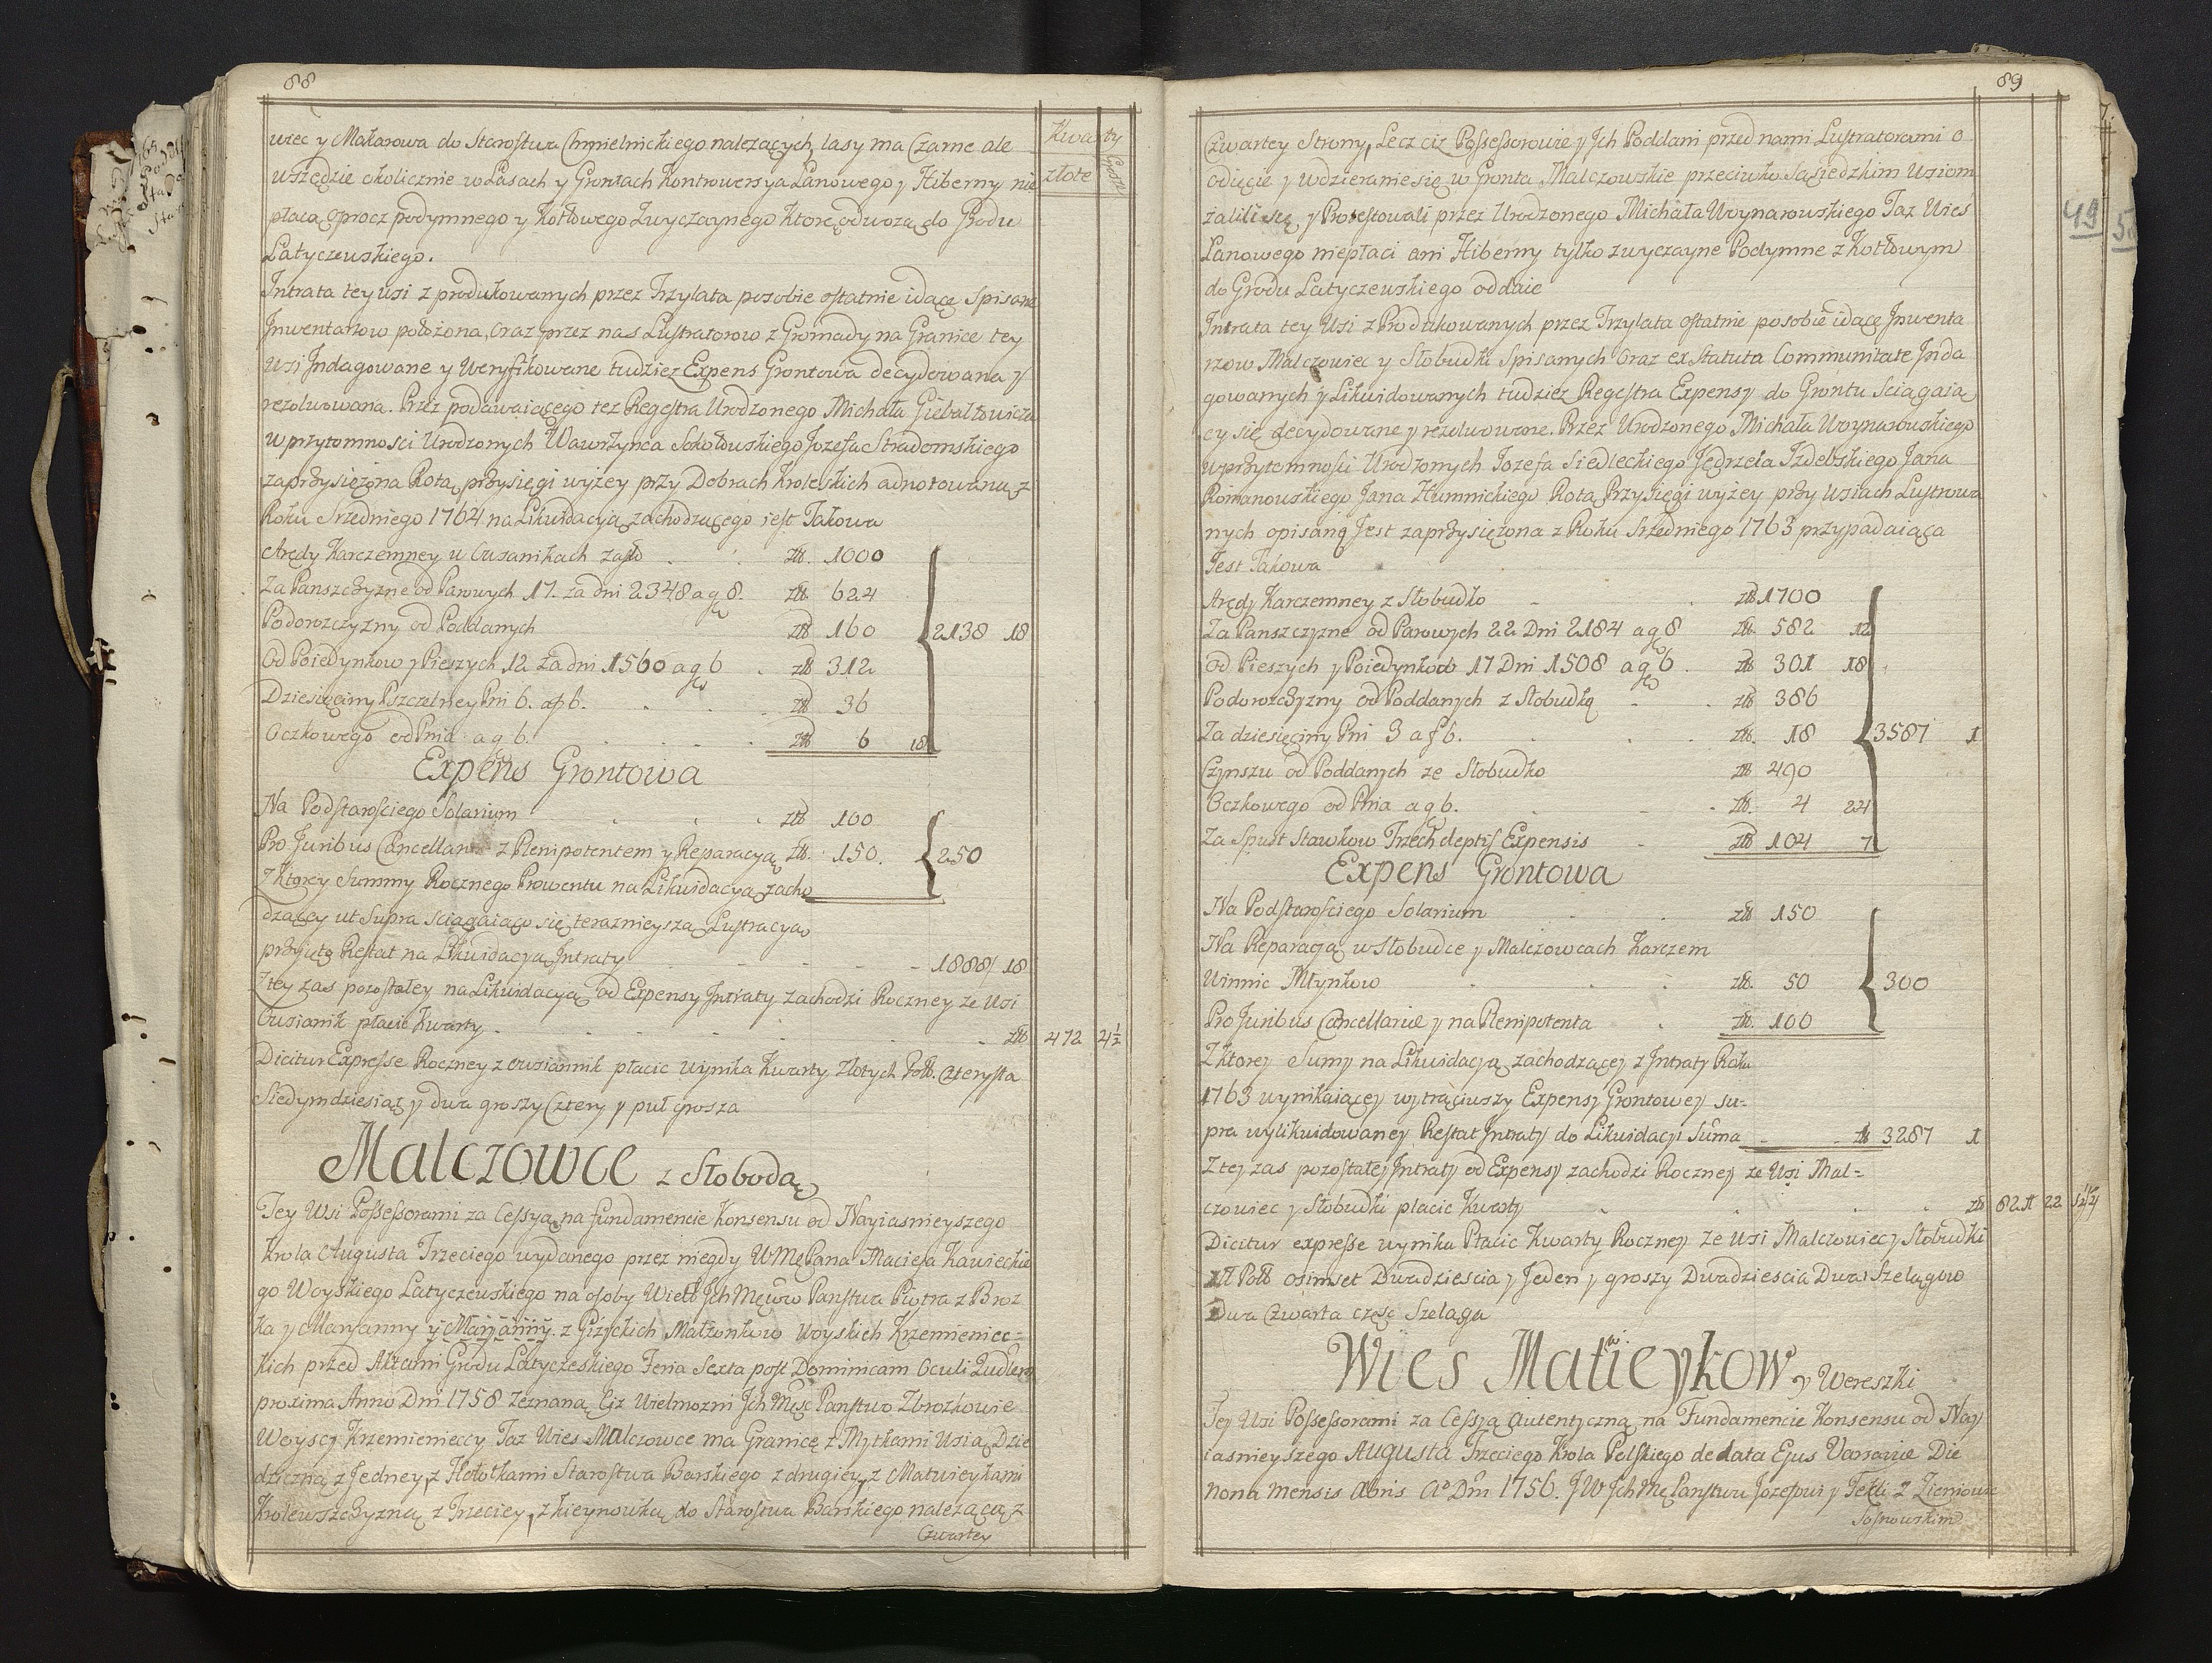 88
wiec y Makarowa do Starostwa Chmielnickiego należących, lasy ma Czarne ale
wszędzie okolicznie w Lasach y Grontach Kontrowersya Lanowego y Hiberny nie
płacą oprocz podymnego y Kotłowego Zwyczaynego ktore odwożą do Grodu
Latyczewskiego.
Intrata tey wsi z produkowanych przez Trzylata po sobie ostatnie idące Spisane
Inwentarzow położona, oraz przez nas Lustratorow z Gromady na Granice tey
wsi Indagowane y Weryfikowane tudziez Expens Grontowa decydowana y
rezolwowana. Przez podawaiącego tez Regestra Urodzonego Michała Giebałtowicza
w przytomnosci Urodzonych Wawrzynca Sokołowskiego Jozefa Stradomskiego
zaprzysiężona Rotą przysięgi wyżey przy Dobrach Krolewskich adnotowaną z
Roku Srzedniego 1764 na Likwidacyą zachodzącego jest Takowa
Arędy Karczemney w Owsanikach
zł. 1000
Za Panszczyznę od Parowych 17. za dni 2348 a g 8.
zł 624
Podorozczyzny od Poddanych
zł 160
2138 18
Od Poiedynkow y Pieszych 12 za dni 1560 a g 6
zł 312
Dziesięciny Pszczelney Pni 6. a f 6.
zł 36
Oczkowego od Pnia a g 6.
zł 6 18
Expens Grontowa
Na Podstarosciego Solarium
zł 100
Pro Juribus Cancellariæ z Plenipotentem y Reparacyą
zł. 150.
250
Z ktorey Summy Rocznego Prowentu na Likwidacyą zacho
dzący ut Supra sciągaiąco się teraznieyszą Lustracyą
przyięta Restat na Likwidacyą Intraty
1888/ 18
Z tey zas pozostałey na Likwidacyą od Expensy Intraty zachodzi Roczney ze Wsi
Owsianik płacic Kwarty
zł 472 4½
Dicitur Expresse Roczney z Owsiannik płacic wynika Kwarty Złotych Poll. Czterysta
Siedymdziesiąt y dwa groszy Cztery y puł grosza
Malczowce z Słobodą
Tey Wsi Possessorami za Cessyą na fundamencie Konsensu od Nayiasnieyszego
Krola Augusta Trzeciego wydanego przez niegdy WMę Pana Macieja Kawieckie
go Woyskiego Latyczewskiego na osoby Wiel Ich Męćiow Panstwa Piotra z Broz
ka y Maryanny y Maryanny z Gizyckich Małżonkow Woyskich Krzemieniec=
kich przed Aktami Grodu Latyczeskiego Feria Sexta post Dominicam Oculi Quadra
proxima Anno Dni 1758 Zeznaną Ciz Wielmozni Ich Męsc Panstwo Zbrozkowie
Woyscy Krzemienieccy Taz Wies Malczowce ma Granicę z Mytkami Wsią Dzie
dziczną z Jedney, z Hołotkami Starostwa Barskiego z drugiey, z Matwieykami
Krolewszczyzną z Trzeciey, z kieynowką do Starostwa Barskiego należącą z
Czwartey
Kwarty
złote
Grosze
89
Czwartey Strony, Lecz ciz Possessorowie y Ich Poddani przed nami Lustratorami o
odięcie y wdzieranie się w Gronta Malczowskie przeciwko Sąsiedzkim Wsiom
żalili się y Protestowali przez Urodzonego Michała Woynarowskiego Taz Wies
Lanowego niepłaci ani Hiberny tylko zwyczayne Podymne z Kotłowym
do Grodu Latyczewskiego oddaie
Intrata tey Wsi z Produkowanych przez Trzylata ostatnie posobie idące Inwenta
rzow Malczowiec y Słobudki Spisanych Oraz ex Statuta Communitate Inda
gowanych y Likwidowanych tudziez Regestra Expensy do Grontu Sciągaią
cy się decydowane y rezolwowane. Przez Urodzonego Michała Woynarowskiego
w przytomnosci Urodzonych Jozefa Siedleckiego Jędrzeia Izdebskiego Jana
Romanowskiego Jana Humnickiego Rotą Przysięgi wyżey przy Wsiach Lustrowa
nych opisaną Jest zaprzysiężona z Roku Srzedniego 1763 przypadaiąca
Jest Takowa
Arędy Karczemney z Słobudką
zł 1700
Za Panszczyznę od Parowych 22 Dni 2184 a g 8
zł. 582 12
Od Pieszych y Poiedynkow 17 Dni 1508 a g 6
zł 301 18
Podorozczyzny od Poddanych z Słobudką
zł 386
Za dziesięciny Pni 3 a f 6.
zł. 18
3587 1
Czynszu od Poddanych ze Słobudką
zł 490
Oczkowego od Pnia a g 6.
zł. 4 24
Za Spust Stawkow Trzech deptis Expensis
zł 104 7
Expens Grontowa
Na Podstarosciego Solarium
zł 150
Na Reparacyą w Słobudce y Malczowcach Karczem
Winnic Młynkow
zł. 50
300
Pro Juribus Cancellariæ y na Plenipotenta
zł. 100
Z ktorej Sumy na Likwidacyą zachodzącej z Intraty Roku
1763 wynikaiącej wytrąciwszy Expensy Grontowej su=
pra wylikwidowanej Restat Intraty do Likwidacyi Suma
zł 3287 1
Z tej zas pozostałej Intraty od Expensy zachodzi Rocznej ze Wsi Mal=
czowiec y Słobudki płacic Kwarty
zł 821 22
Dicitur expresse wynika Płacic Kwarty Rocznej ze wsi Malczowiec y Słobudki
zł Poll osimset Dwadziescia y Jeden y groszy Dwadziescia Dwa Szelągow
Dwa Czwarta częsc Szeląga
Wies Matwieykow y Wereszki
Tey Wsi Possessorami za Cessyą Autentyczną na Fundamencie Konsensu od Nay
iasnieyszego Augusta Trzeciego Krola Polskiego de data Ejus Varsaviæ Die
nona Mensis Abris Ao Dni 1756. JW Ich Mę Panstwu Jozefowi y Tekli z Zieniowic
Sosnowskim
49